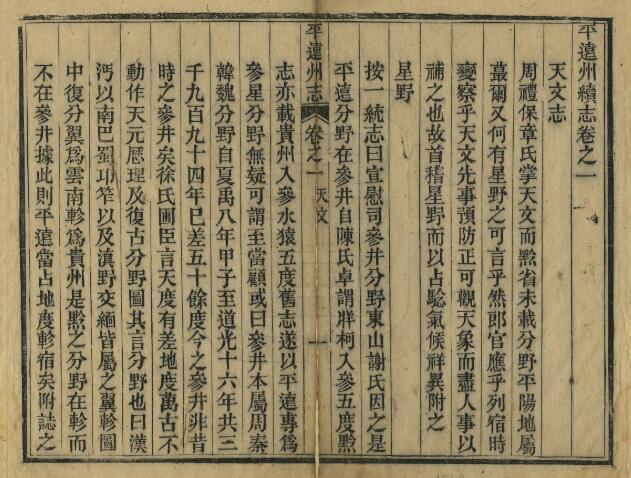 平遠州續志卷之一
天文志
周禮保章氏掌天文而黔省未載分野平陽地屬
蕞爾又何有星野之可言乎然郎官應乎列宿時
變察乎天文先事預防正可觀天象而盡人事以
補之也故首稽星野而以占驗氣候祥異附之
星野
按一統志曰宣慰司參井分野東山謝氏因之是
平遠分野在參井自陳氏卓謂牂柯入參五度黔
平遠州志 卷之一 天文 一
志亦載貴州入參水猿五度舊志遂以平遠專為
參星分野無疑可謂至當顧或曰參井本屬周秦
韓魏分野自夏禹八年甲子至道光十六年共三
千九百九十四年巳差五十餘度今之參井非昔
時之參井矣徐氏圃臣言天度有差地度萬古不
動作天元歴理及復古分野圖其言分野也曰漢
沔以南巴蜀邛笮以及滇野交緬皆屬之翼軫圖
中復分翼為雲南軫為貴州是黔之分野在軫而
不在參井據此則平遠當占地度軫宿矣附誌之